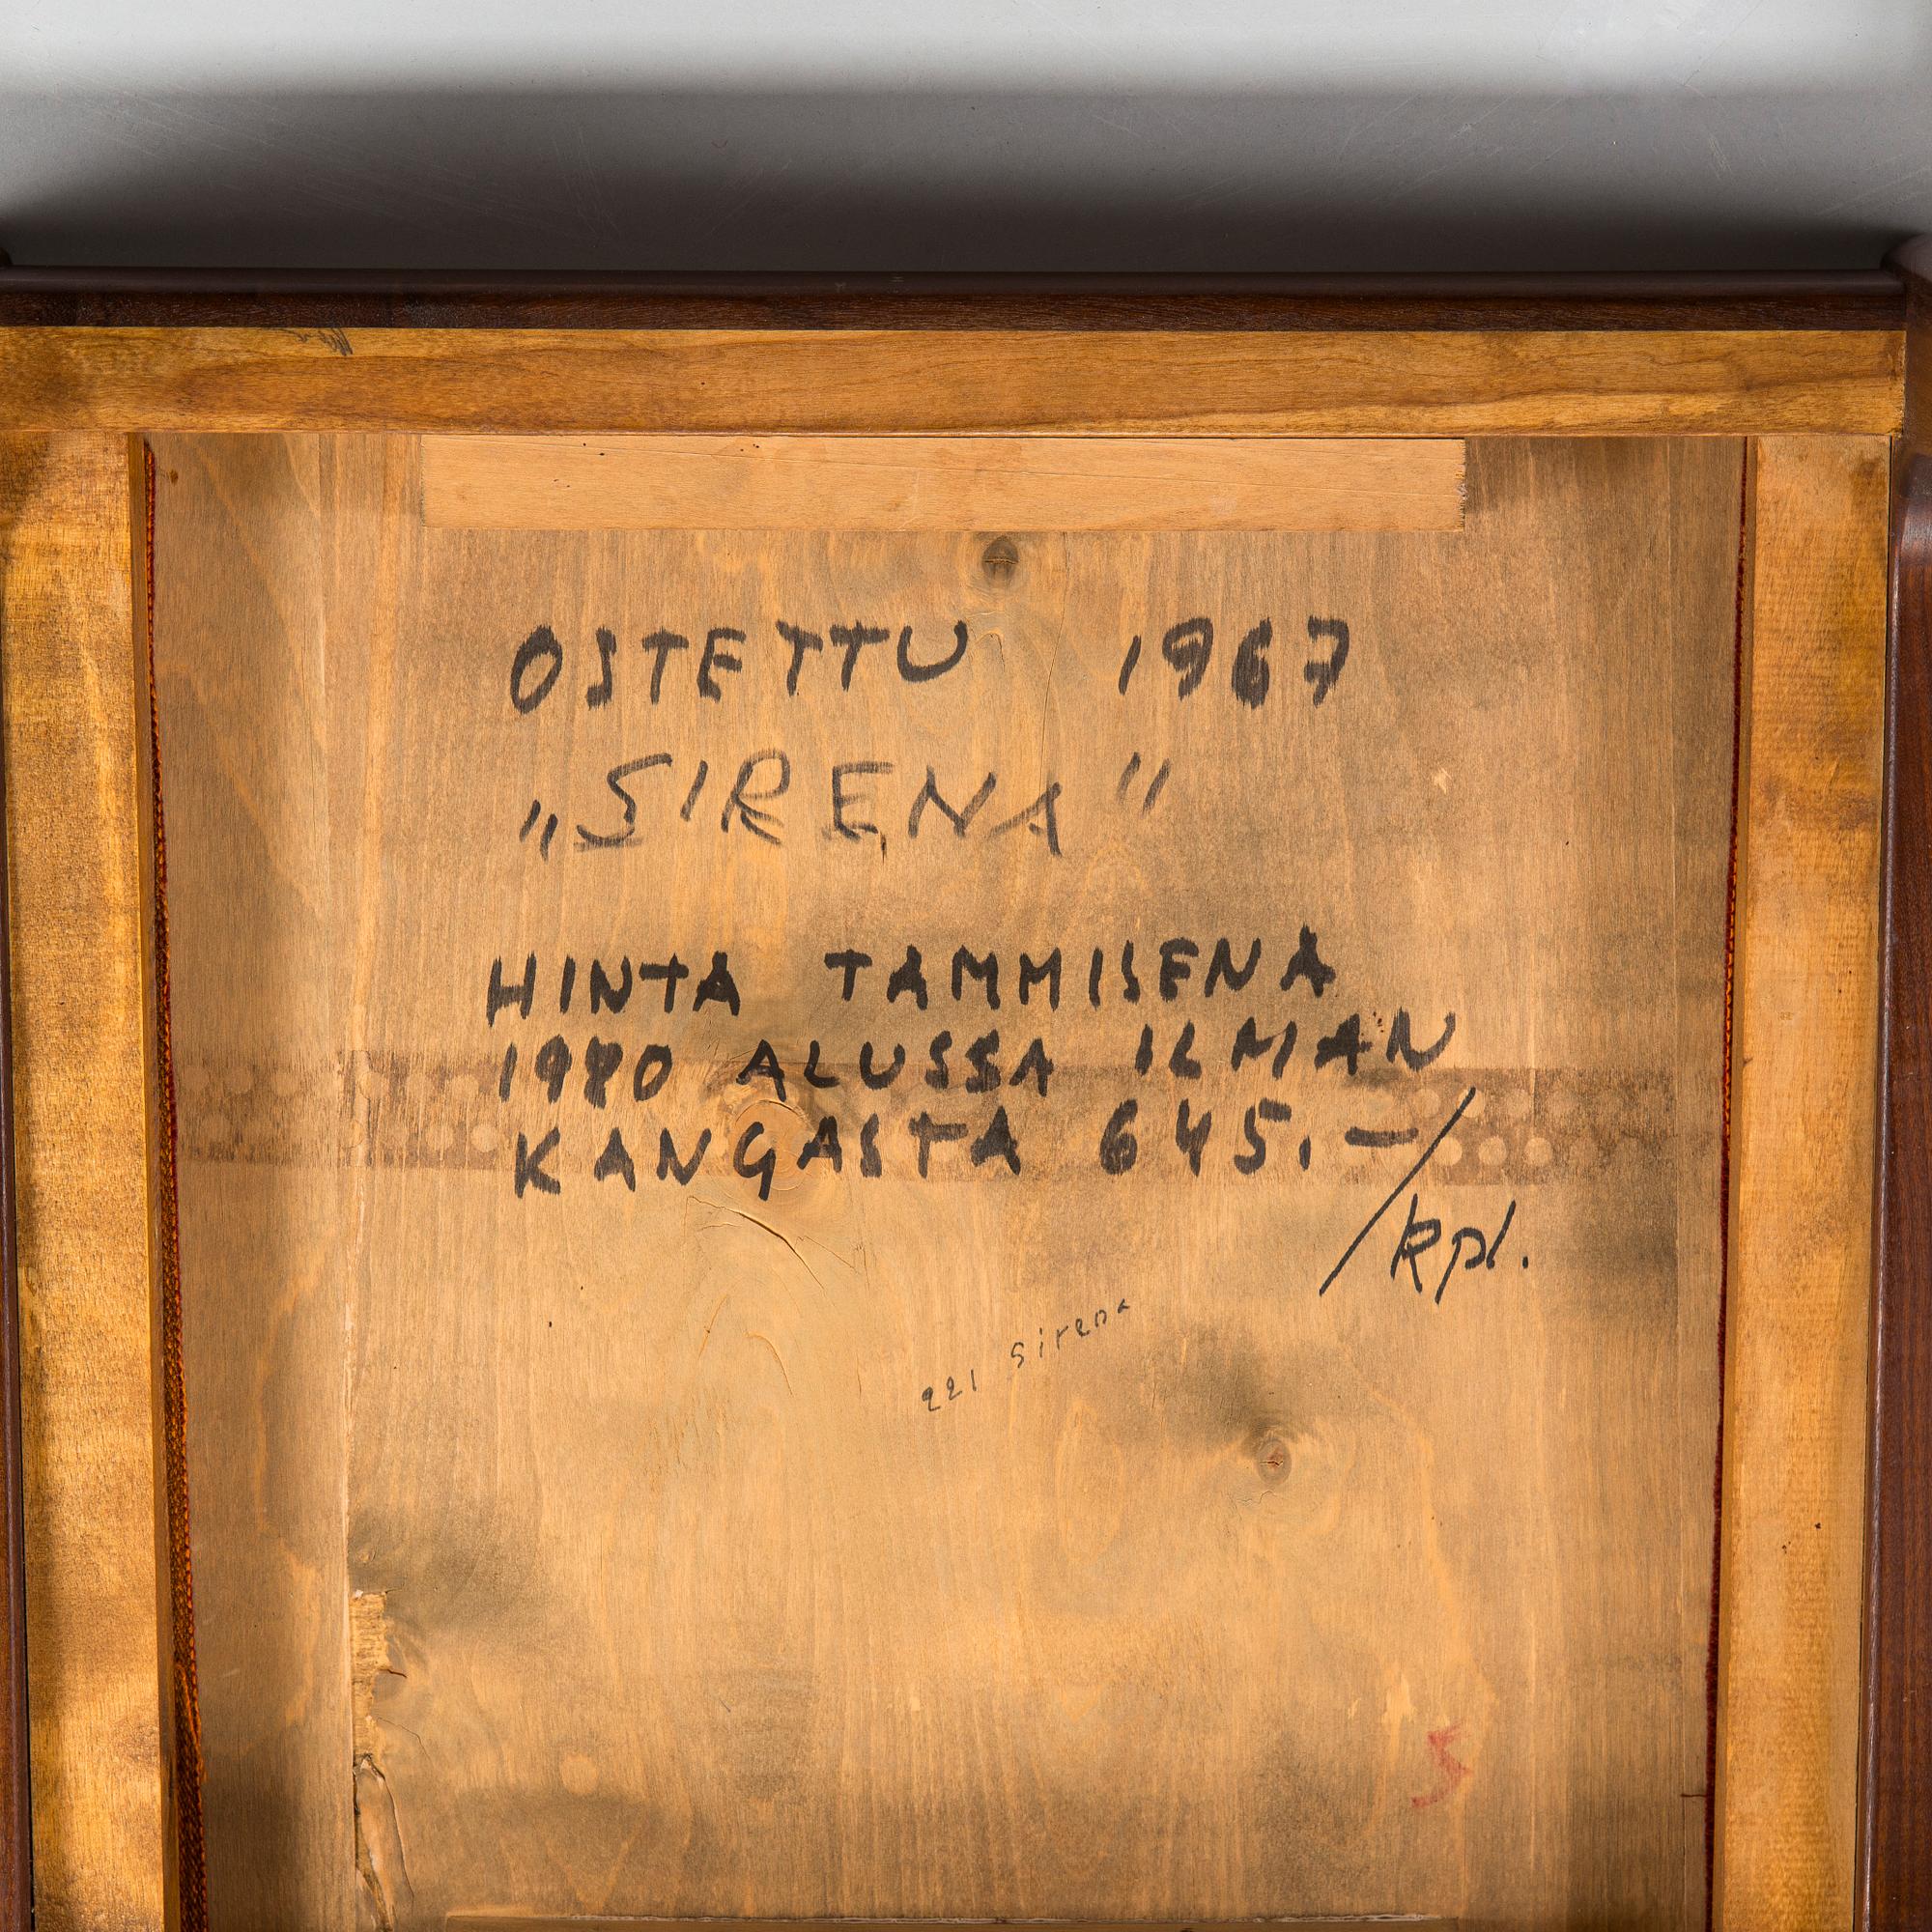 OSTETTU 1967
„SIRENA"
HINTA TAMMISENA
1970 ALUSSA ILMAN
KANGASTA 645.—/
kpl.
221 Sirena
5